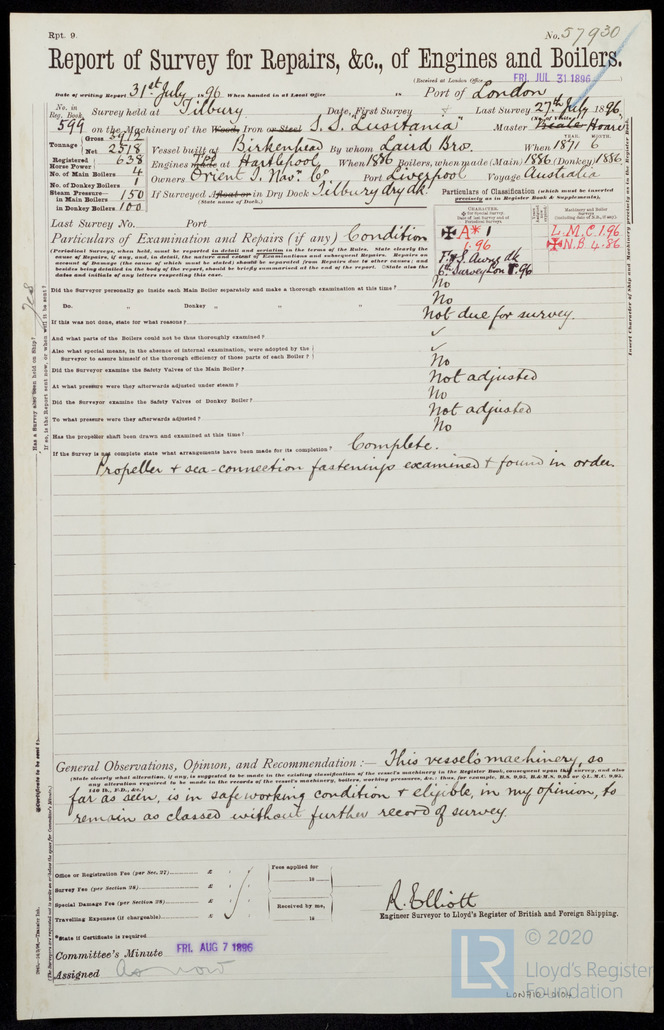 Rpt. 9.
No. 57930
Report of Survey for Repairs, &c., of Engines and Boilers.
(Received at London Office FRI. JUL 31 1896 )
Date of writing Report 31st July 1896 When handed in at Local Office 18 Port of London
No. in Reg. Book. Survey held at Tilbury Date, First Survey Last Survey 27th July 1896
599 on the Machinery of the Wood, Iron or Steel S.S. "Lusitania" Master Hoare
Tonnage Gross 3912
Net 2518
Vessel built at Birkenhead By whom Laird Bros. When 1871 6
YEAR. MONTH.
Registered Horse Power 638 Engines made at Hartlepool When 1886 Boilers, when made (Main) 1886 (Donkey) 1886
No. of Main Boilers 4
No. of Donkey Boilers 1 Owners Orient S. Nav. Co Port Liverpool Voyage Australia
Steam Pressure in Main Boilers 150 If Surveyed Afloat or in Dry Dock Tilbury dry dk.
(State name of Dock.)
in Donkey Boilers 100
Particulars of Classification (which must be inserted precisely as in Register Book & Supplements).
Last Survey No. Port
CHARACTER.
Machinery and Boiler Surveys
✠ A* 1
1.96
L.M.C. 1.96
✠ N.B. 4.86
Particulars of Examination and Repairs (if any) Condition
(Periodical Surveys, when held, must be reported in detail and seriatim in the terms of the Rules. State clearly the
cause of Repairs, if any, and, in detail, the nature and extent of Examinations and subsequent Repairs. Repairs on
account of Damage (the cause of which must be stated) should be separated from Repairs due to other causes; and
besides being detailed in the body of the report, should be briefly summarised at the end of the report. State also the
dates and initials of any letters respecting this case.
Did the Surveyor personally go inside each Main Boiler separately and make a thorough examination at this time? No
Do. " Donkey " " " No
If this was not done, state for what reasons? Not due for survey.
And what parts of the Boilers could not be thus thoroughly examined? ✓
Also what special means, in the absence of internal examination, were adopted by the
Surveyor to assure himself of the thorough efficiency of those parts of each Boiler? ✓
Did the Surveyor examine the Safety Valves of the Main Boiler? No
At what pressure were they afterwards adjusted under steam? Not adjusted
Did the Surveyor examine the Safety Valves of Donkey Boiler? No
To what pressure were they afterwards adjusted? Not adjusted
Has the propeller shaft been drawn and examined at this time? No
If the Survey is not complete state what arrangements have been made for its completion? Complete.
Propeller & sea-connection fastenings examined & found in order.
Has a Survey also been held on Ship? Yes
If so, is the Report sent now, or when will it be sent?
Insert Character of Ship and Machinery precisely as in the Register Book.
General Observations, Opinion, and Recommendation :— This vessel's machinery, so
(State clearly what alteration, if any, is suggested to be made in the existing classification of the vessel's machinery in the Register Book, consequent upon this survey, and also
any alteration required to be made in the records of the vessel's machinery, boilers, working pressures, &c.: thus, for example, B.S. 9,95, B.&M.S. 9,95 or L.M.C. 9,95,
140 lb., F.D., &c.)
far as seen, is in safe working condition & eligible, in my opinion, to
remain as classed without further record of survey.
Office or Registration Fee (per Sec. 27) £ : :
Survey Fee (per Section 28) £ : :
Special Damage Fee (per Section 28) £ : :
Travelling Expenses (if chargeable) £ : :
Fees applied for
18
Received by me,
18
R. Elliott
Engineer Surveyor to Lloyd's Register of British and Foreign Shipping.
*State if Certificate is required
Committee's Minute FRI. AUG 7 1896
Assigned as now
LR © 2020
Lloyd's Register
Foundation